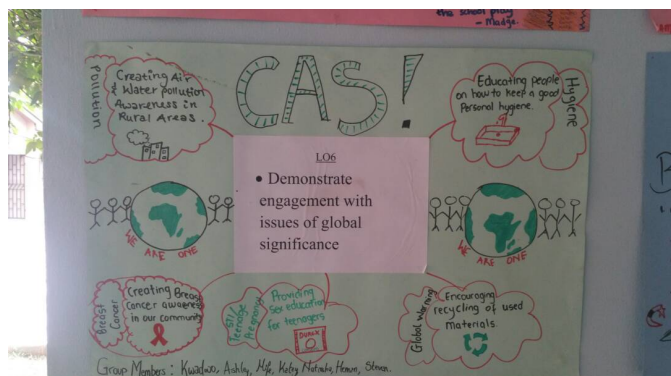 the school play
- Madge.
CAS!
Pollution
Creating Air
& Water pollution
Awareness in
Rural Areas.
Educating people
on how to keep a good
Personal hygiene.
Hygiene
LO6
• Demonstrate
engagement with
issues of global
significance
WE ARE ONE
WE ARE ONE
Breast
Cancer
Creating Breast
Cancer awareness
in our community
STI/
Teenage
Pregnancy
Providing
Sex education
for teenagers
DUREX
Global Warming
Encouraging
recycling of used
materials.
Group Members : Kwadwo, Ashley, Kelsy Steven.